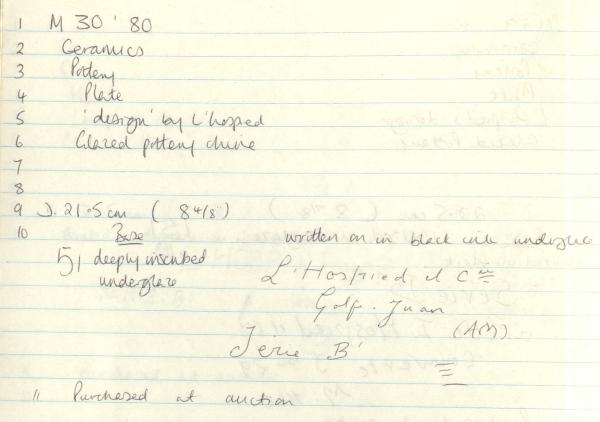 1 M 30 ' 80
2 Ceramics
3 Pottery
4 Plate
5 'design' by L'hospied
6 Glazed pottery
7
8
9 D. 21.5 cm ( 8 4/8 )
10 Base written on in black ink underglaze
51 deeply inscribed underglaze
L'Hospried et Cie
Golfe. Juan
(AM)
Serie B'
11 Purchased at auction